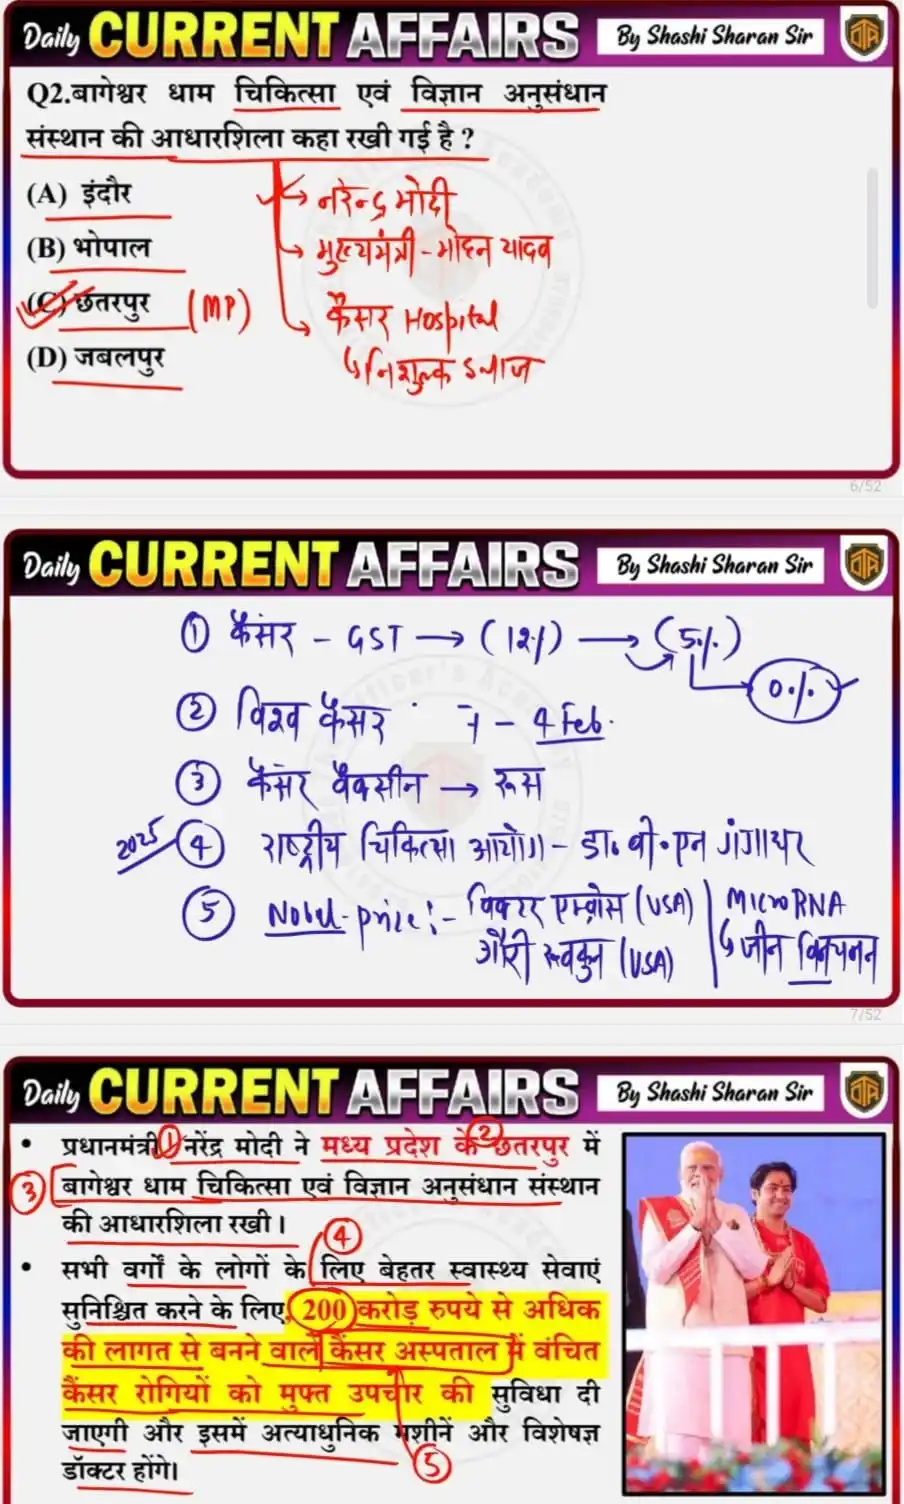 Daily CURRENT AFFAIRS By Shashi Sharan Sir
Q2.बागेश्वर धाम चिकित्सा एवं विज्ञान अनुसंधान
संस्थान की आधारशिला कहा रखी गई है ?
(A) इंदौर
नरेन्द्र मोदी
(B) भोपाल
मुख्यमंत्री - मोहन यादव
(C) छतरपुर (MP)
कैंसर Hospital
(D) जबलपुर
निशुल्क इलाज
6/52
Daily CURRENT AFFAIRS By Shashi Sharan Sir
① कैंसर - GST → (12%) → (5%)
0%
② विश्व कैंसर - 4 Feb.
③ कैंसर वैक्सीन → रूस
2025 ④ राष्ट्रीय चिकित्सा आयोग - डा. बी.एन गंगाधर
⑤ Nobel-price:- विक्टर एम्ब्रोस (USA) | MicroRNA
गैरी रुवकुन (USA) जीन
7/52
Daily CURRENT AFFAIRS By Shashi Sharan Sir
• प्रधानमंत्री ① नरेंद्र मोदी ने मध्य प्रदेश के ② छतरपुर में
③ बागेश्वर धाम चिकित्सा एवं विज्ञान अनुसंधान संस्थान
की आधारशिला रखी।
④
• सभी वर्गों के लोगों के लिए बेहतर स्वास्थ्य सेवाएं
सुनिश्चित करने के लिए, 200 करोड़ रुपये से अधिक
की लागत से बनने वाले कैंसर अस्पताल में वंचित
कैंसर रोगियों को मुफ्त उपचार की सुविधा दी
जाएगी और इसमें अत्याधुनिक मशीनें और विशेषज्ञ
डॉक्टर होंगे।
⑤